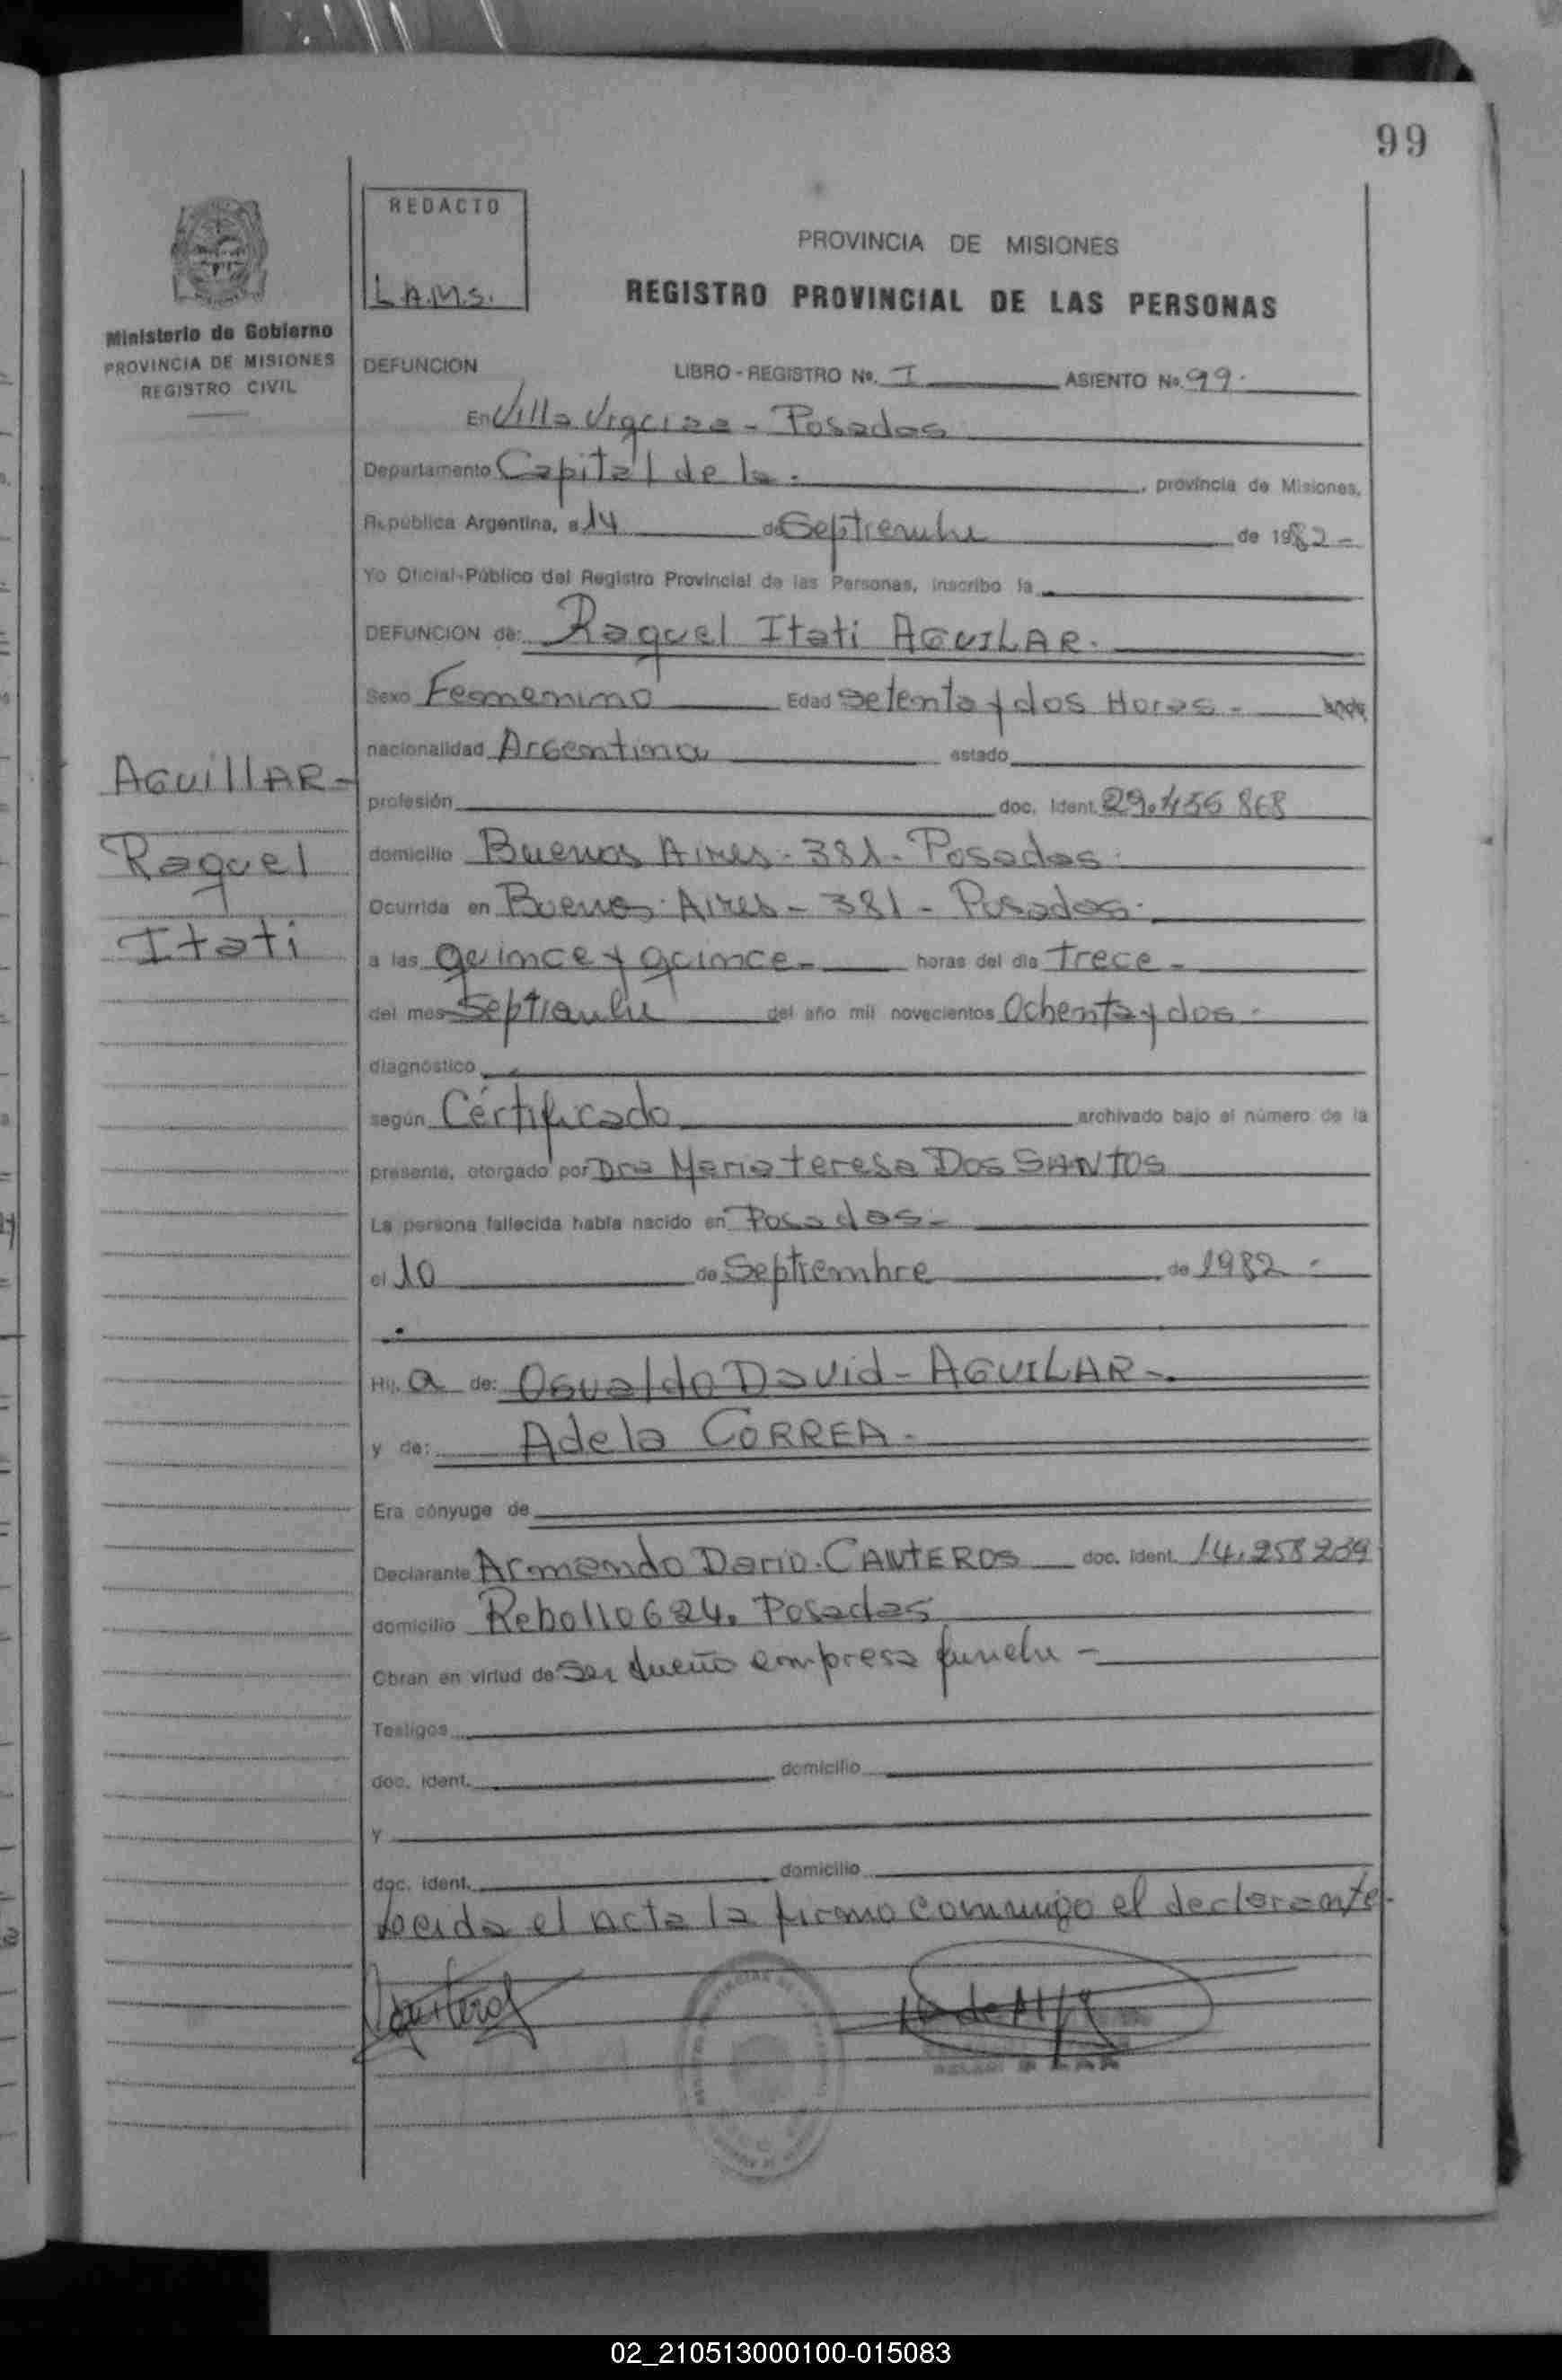 99
REDACTO
L.A.M.S.
PROVINCIA DE MISIONES
REGISTRO PROVINCIAL DE LAS PERSONAS
Ministerio de Gobierno
PROVINCIA DE MISIONES
REGISTRO CIVIL
DEFUNCION LIBRO - REGISTRO No. I ASIENTO No. 99.
En Villa Urquiza - Posadas
Departamento Capital de la - , provincia de Misiones,
República Argentina, a 14 de Septiembre de 1982 -
Yo Oficial Público del Registro Provincial de las Personas, inscribo la
DEFUNCION de: Raquel Itati AGUILAR.
Sexo Femenino Edad setenta y dos Horas -
nacionalidad Argentina estado
AGUILLAR -
Raquel
Itati
profesión doc. Ident. 29.456 868
domicilio Buenos Aires - 381 - Posadas.
Ocurrida en Buenos Aires - 381 - Posadas.
a las quince y quince - horas del día trece -
del mes Septiembre del año mil novecientos Ochenta y dos -
diagnóstico
según Certificado archivado bajo el número de la
presente, otorgado por Dra Maria teresa Dos SANTOS
La persona fallecida había nacido en Posadas -
el 10 de Septiembre de 1982 -
Hij a de: Osvaldo David - AGUILAR -.
y de: Adela CORREA.
Era cónyuge de
Declarante Armando Dario. CANTEROS doc. ident. 14.258 239
domicilio Rebollo 624. Posadas
Obran en virtud de Ser dueño empresa funebre -
Testigos
doc. ident. domicilio
y
doc. ident. domicilio
Leida el acta la firmo conmigo el declarante.
02_210513000100-015083